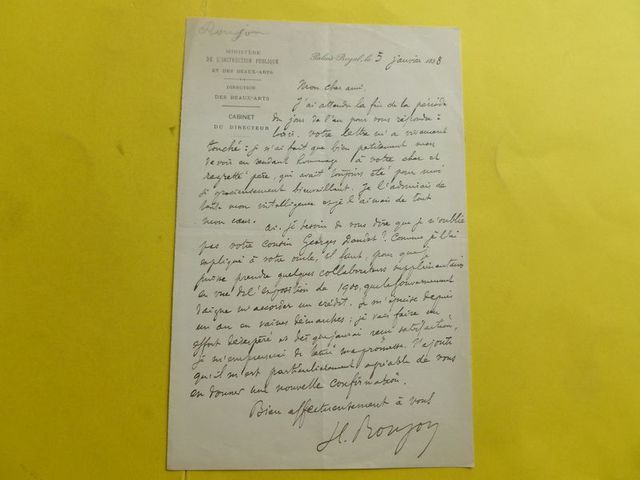 Roujon
MINISTÈRE
DE L'INSTRUCTION PUBLIQUE
ET DES BEAUX-ARTS
DIRECTION
DES BEAUX-ARTS
CABINET
DU DIRECTEUR
Palais-Royal, le 5 janvier 1898
Mon cher ami,
J'ai attendu la fin de la période
du jour de l'an pour vous répondre à
loisir. Votre lettre m'a vivement
touché : je n'ai fait que bien petitement mon
devoir en rendant hommage à votre cher et
regretté père, qui avait toujours été pour moi
si gracieusement bienveillant. Je l'admirais de
toute mon intelligence et je l'aimais de tout
mon cœur.
Ai-je besoin de vous dire que je n'oublie
pas votre cousin Georges ? Comme je l'ai
expliqué à votre oncle, il faut, pour que je
puisse prendre quelques collaborateurs supplémentaires
en vue de l'exposition de 1900, que le Gouvernement
daigne m'accorder un crédit. Je m'épuise depuis
un an en vaines démarches ; je vais faire un
effort désespéré et dès que j'aurai reçu satisfaction,
je m'empresserai de tenir ma promesse. J'ajoute
qu'il m'est particulièrement agréable de vous
en donner une nouvelle confirmation.
Bien affectueusement à vous
H. Roujon